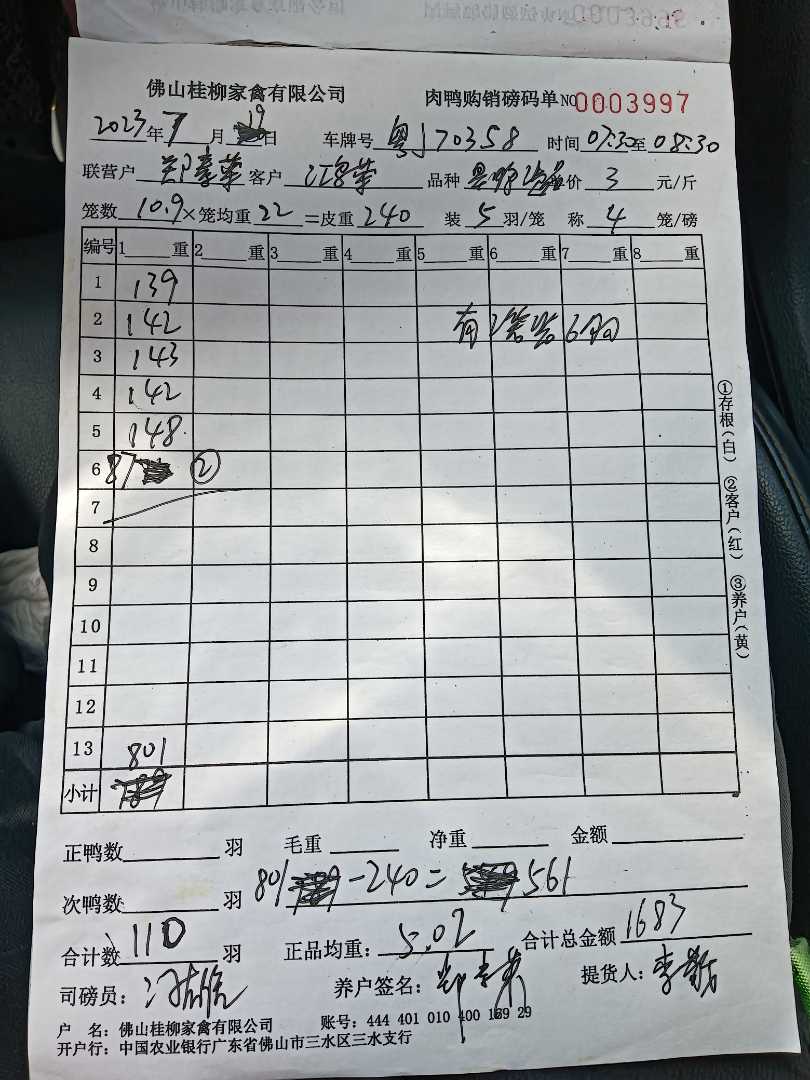 佛山桂柳家禽有限公司 肉鸭购销磅码单 NO 0003997
2023年7月19日 车牌号 粤J70358 时间 07:30至08:30
联营户 客户 品种 价 3 元/斤
笼数 10.9×笼均重 22 =皮重 240 装 5 羽/笼 称 4 笼/磅
编号 1 重 2 重 3 重 4 重 5 重 6 重 7 重 8 重
1 139
2 142 有
3 143
4 142
5 148
6 87 ②
7
8
9
10
11
12
13 801
小计
①存根(白) ②客户(红) ③养户(黄)
正鸭数 羽 毛重 净重 金额
次鸭数 羽 801 -240= 561
合计数 110 羽 正品均重: 5.02 合计总金额 1683
司磅员: 养户签名: 提货人:
户 名: 佛山桂柳家禽有限公司 账号: 444 401 010 400 169 29
开户行: 中国农业银行广东省佛山市三水区三水支行